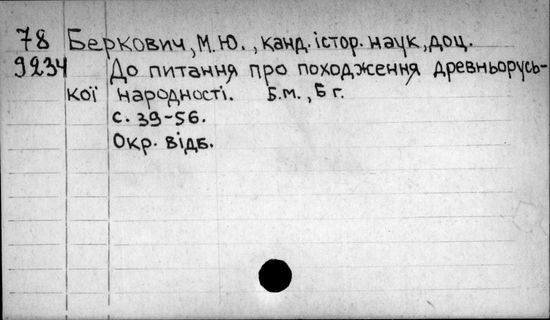 78 Беркович, М.Ю., канд. істор. наук, доц.
9234 До питання про походження древньорусь-
кої народності. Б.м., Б г.
с. 39-56.
Окр. відб.